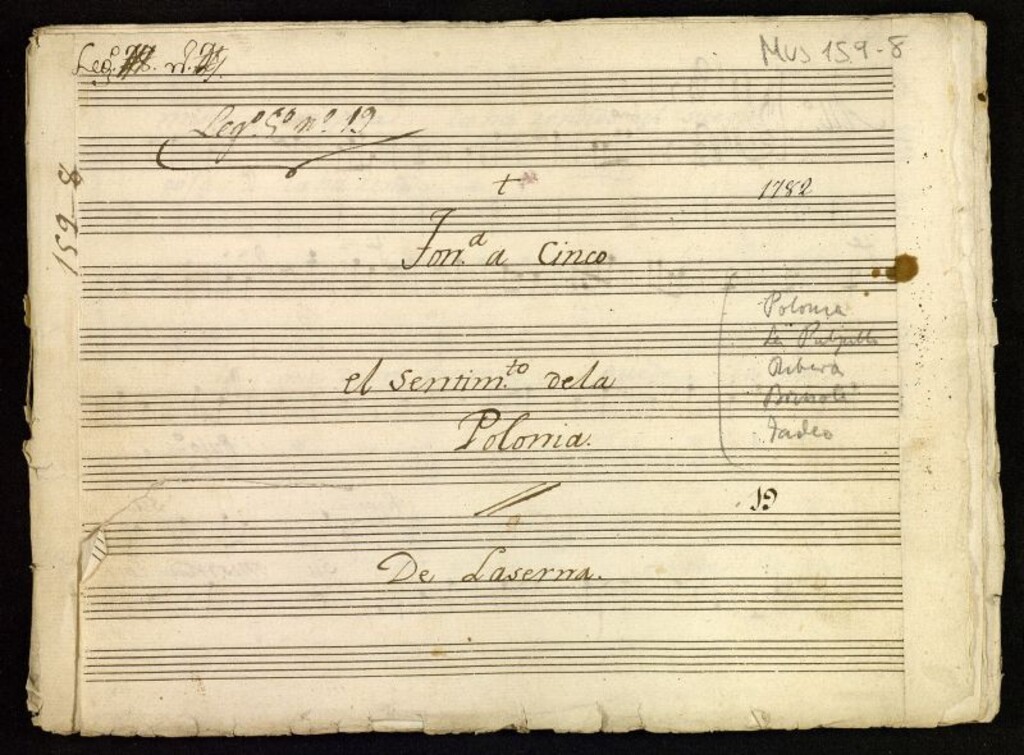 Leg.º
Mus 159-8
Leg.º 5º nº 19
159-8
1782
Ton.ª a Cinco
Polonia
La
Ribera
Tadeo
el Sentim.to dela
Polonia.
19
De Laserna.